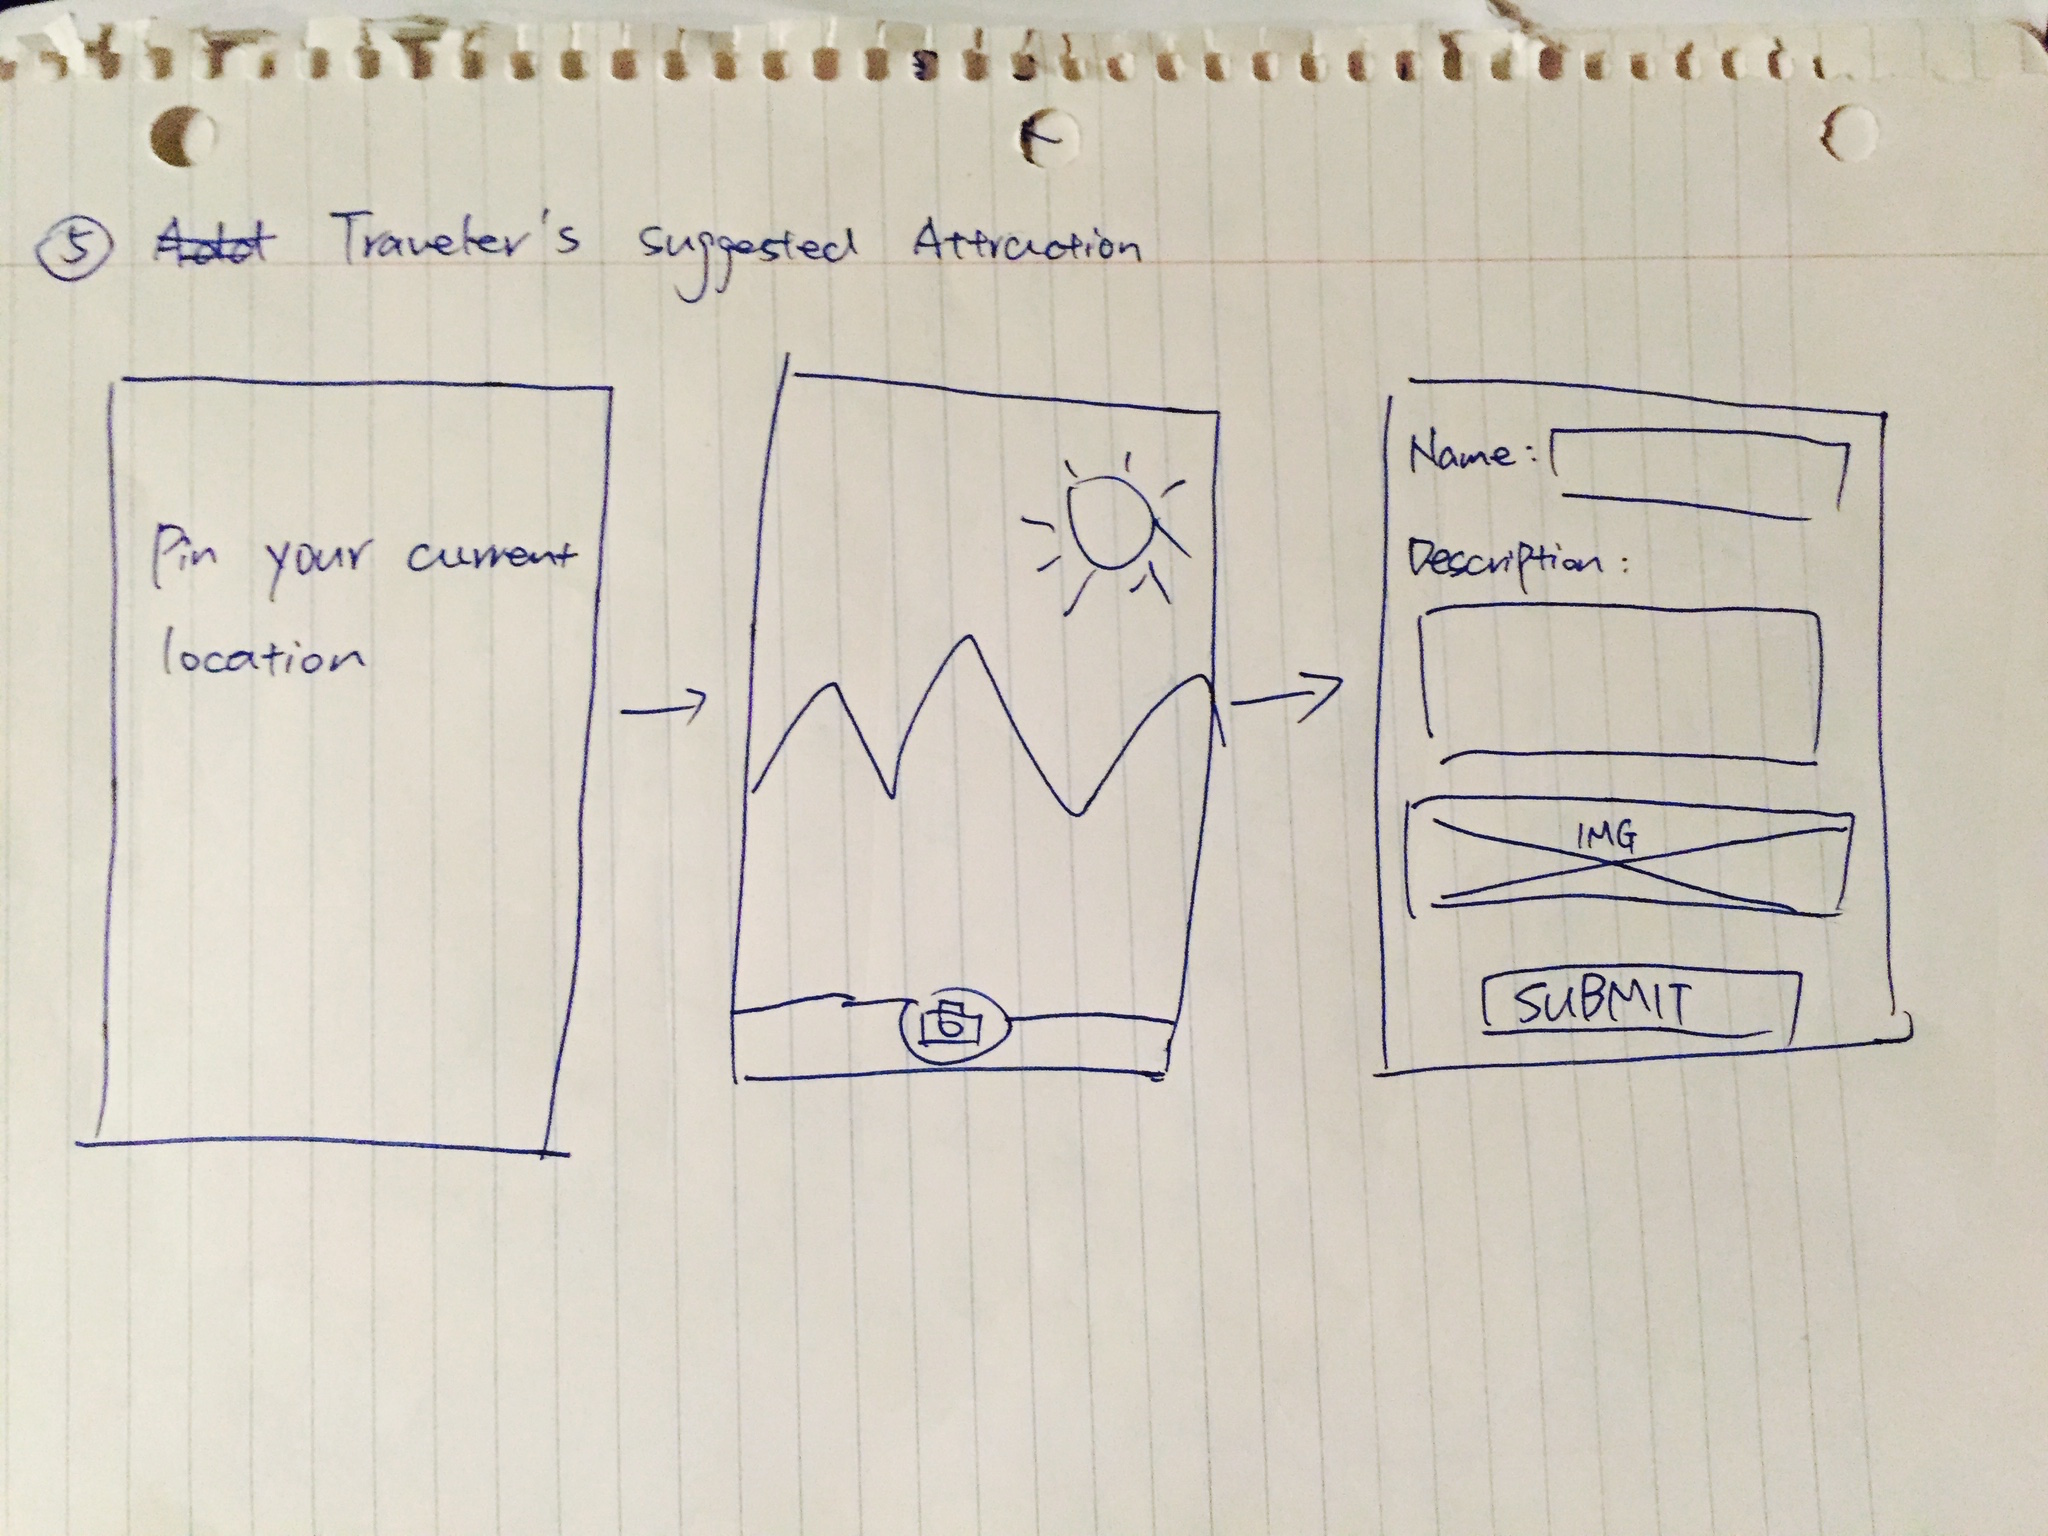 5 Add Traveler's suggested Attraction
Pin your current
location
Name:
Description:
IMG
SUBMIT